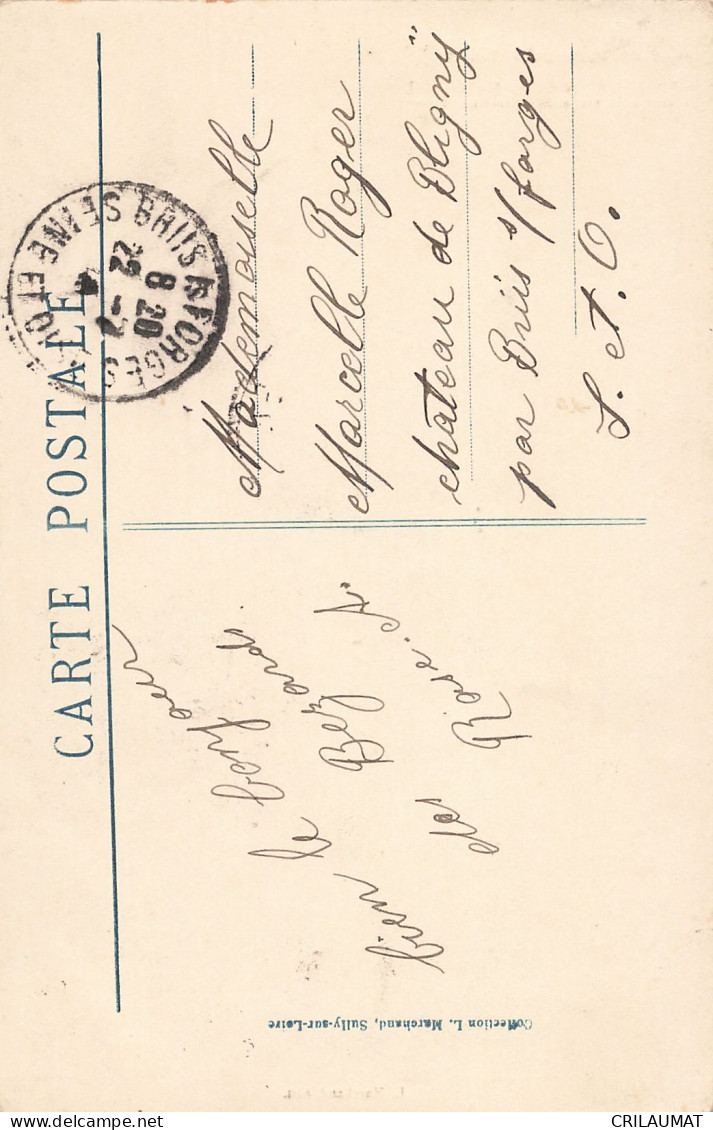 CARTE POSTALE
BRIIS Ss FORGES
SEINE ET OISE
8 20
22 -7
Mademouselle
Marcelle Roger
château de Bligny
par Briis s/forges
S. et. O.
le bonjour
bien
de
Collection L. Marchand, Sully-sur-Loire
CRILAUMAT